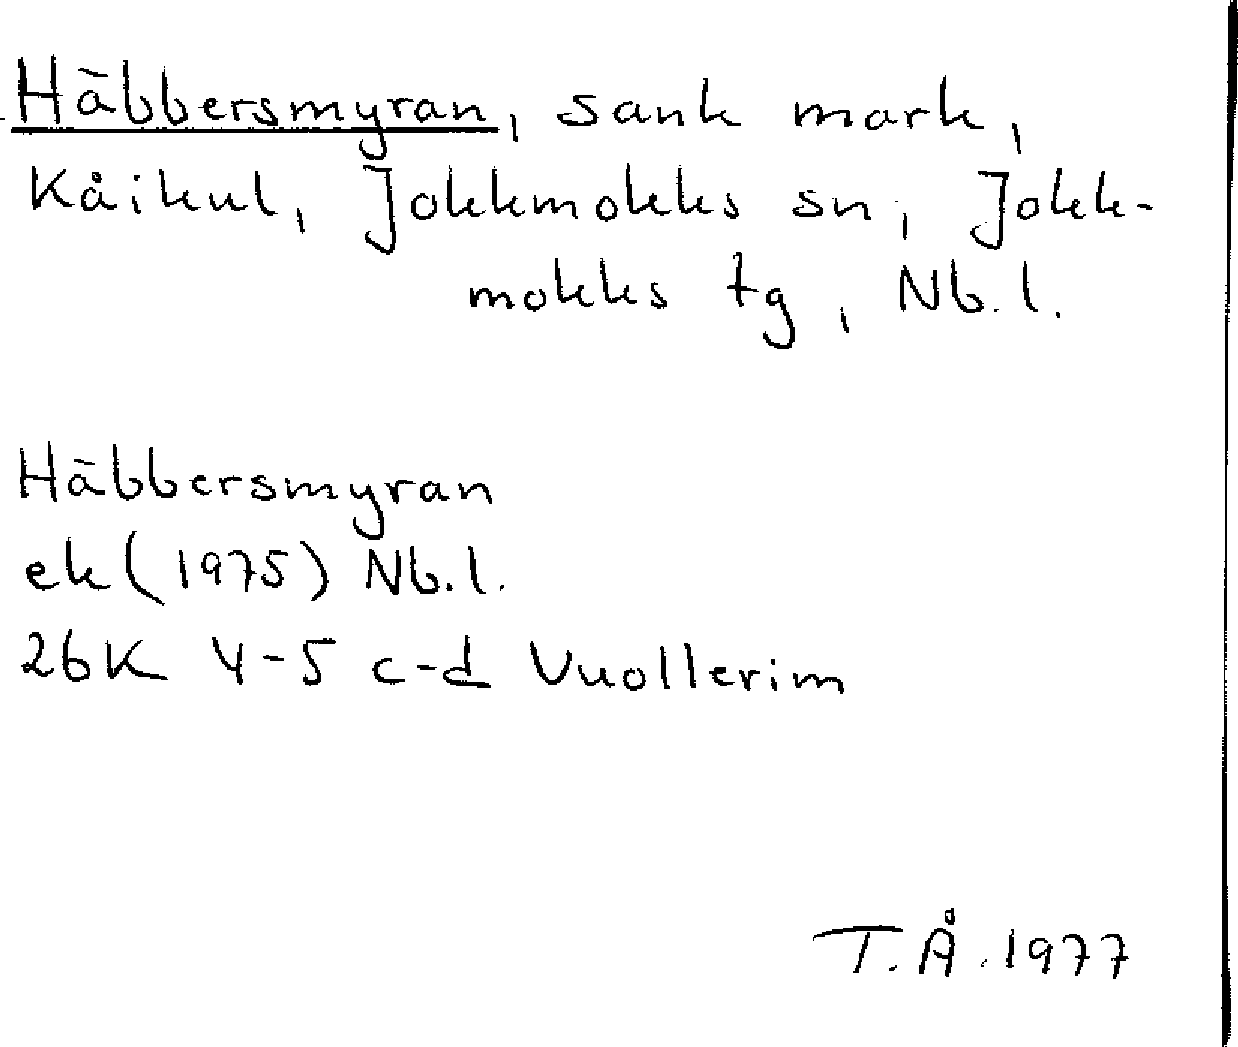 Häbbersmyran, sank mark,
Kåikul, Jokkmokks sn, Jokk-
mokks tg, Nb.l.
Häbbersmyran
ek (1975) Nb.l.
26K 4-5 c-d Vuollerim
T.Å. 1977